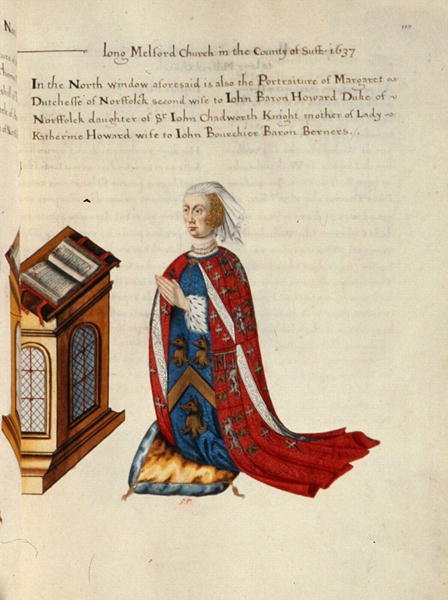 Long Melford Church in the County of Suff: 1637
In the North window aforesaid is also the Portraiture of Margaret
Dutchesse of Norffolck second wife to Iohn Baron Howard Duke of
Norffolck daughter of Sr. Iohn Chadworth Knight mother of Lady
Katherine Howard wife to Iohn Bourchier Baron Berners.